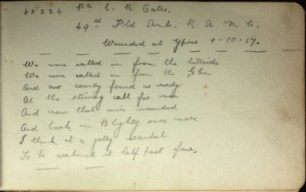 Pte E. R. Gates.
49th Fld Amb. R A M C.
Wounded at Ypres 4-10-17.
We were called in from the hillside
We were called in from the Glen
And our country found us ready
At the stirring call for men
And now that we're wounded
And back in Blighty once more
I think it a jolly scandal
To be wakened at half past four.